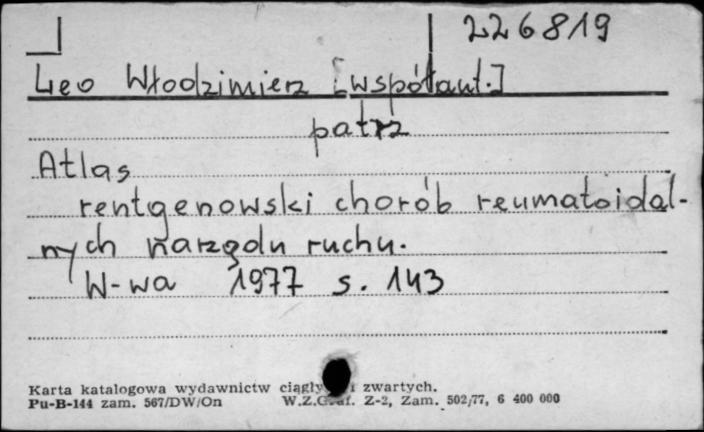 226819
Leo Włodzimierz [współaut.]
patrz
Atlas
rentgenowski chorób reumatoidal-
nych narządu ruchu.
W-wa 1977 s. 143
Karta katalogowa wydawnictw i zwartych.
Pu-B-144 zam. 567/DW/On Z-2, Zam. 502/77, 6 400 000